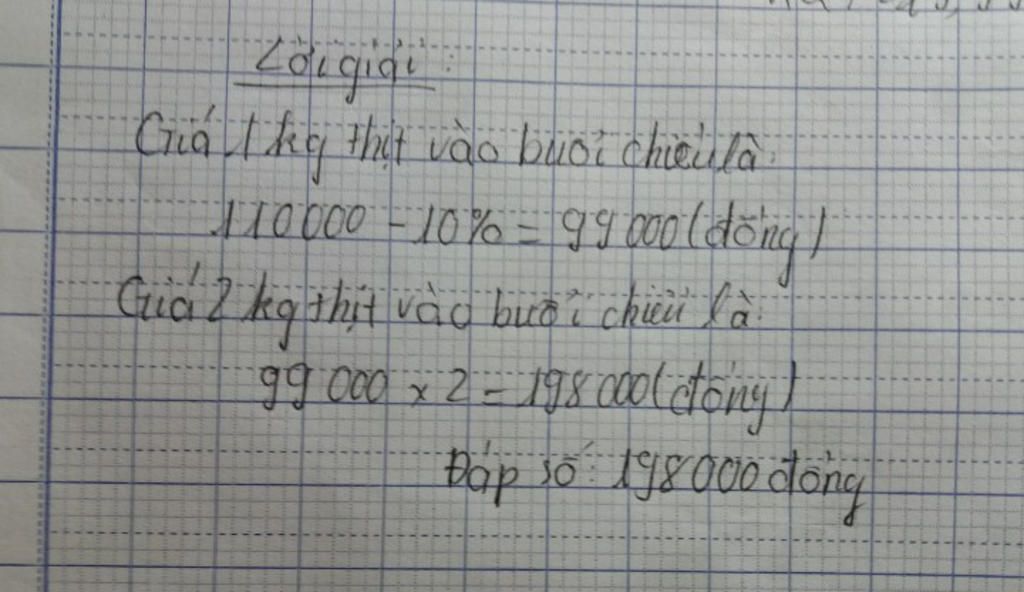 Lời giải:
Giá 1 kg thịt vào buổi chiều là:
110000 - 10% = 99 000 (đồng)
Giá 2 kg thịt vào buổi chiều là:
99 000 x 2 = 198 000 (đồng)
Đáp số: 198 000 đồng